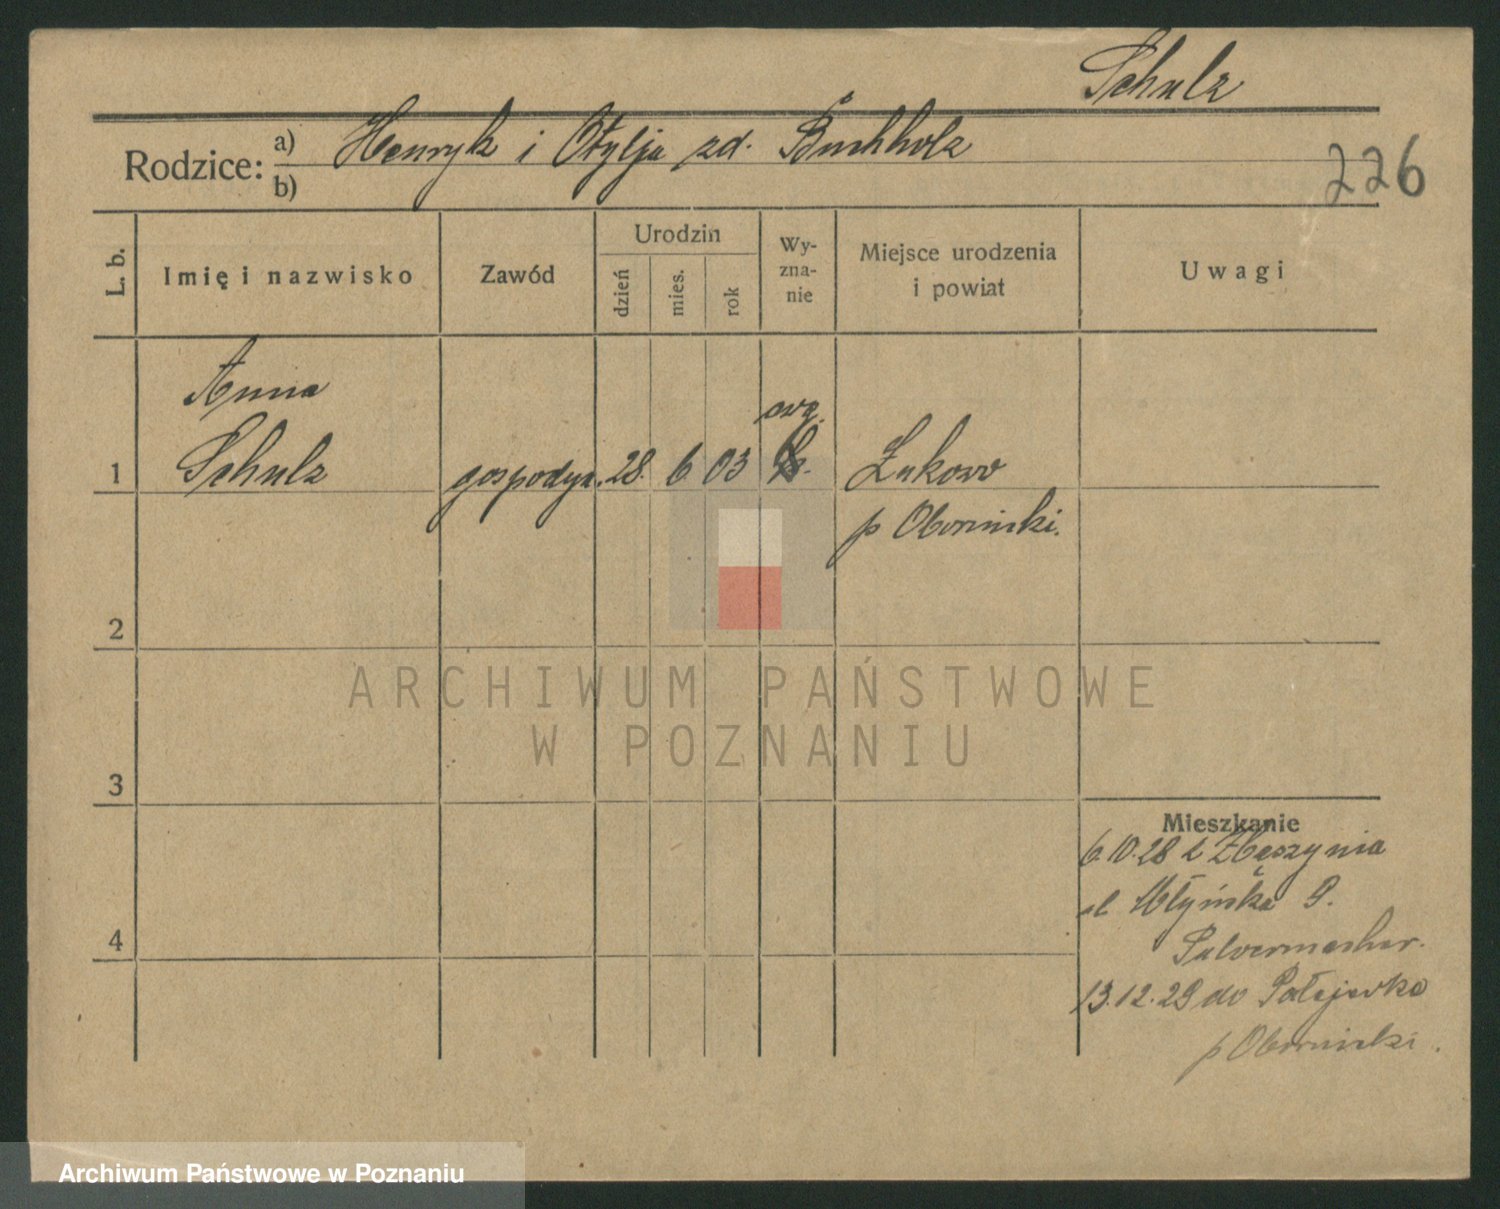 Schulz
Rodzice: a) Henryk i Otylja zd. Buchholz
b)
226
L. b.
Imię i nazwisko
Zawód
Urodzin
dzień
mies.
rok
Wy-
zna-
nie
Miejsce urodzenia
i powiat
Uwagi
Anna
ewg.
1 Schulz gospodyn. 28. 6. 03 Żukowo
p Obornicki.
2
3
4
ARCHIWUM PAŃSTWOWE
W POZNANIU
Mieszkanie
6.10.28 z Zbąszynia
ul Młyńska 9.
Pulvermacher.
13.12.29 do Połajewka
p Obornicki.
Archiwum Państwowe w Poznaniu